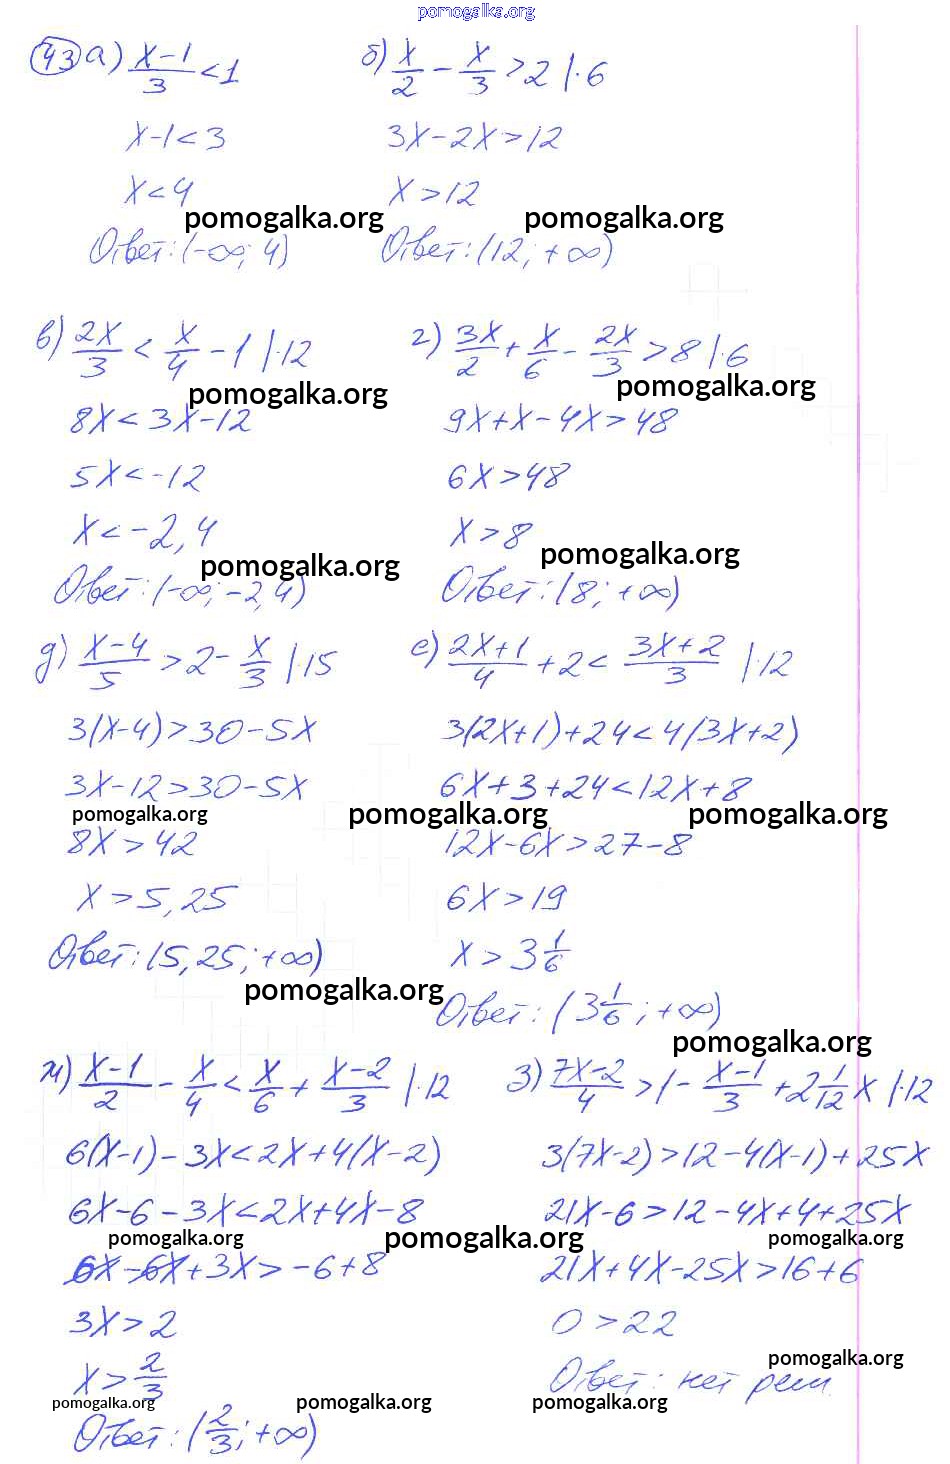 pomogalka.org
43 а) (x-1)/3 < 1
x-1 < 3
x < 4
pomogalka.org
Ответ: (-∞; 4)
б) x/2 - x/3 > 2 |·6
3x-2x > 12
x > 12
pomogalka.org
Ответ: (12; +∞)
в) 2x/3 < x/4 - 1 |·12
pomogalka.org
8x < 3x-12
5x < -12
x < -2,4
pomogalka.org
Ответ: (-∞; -2,4)
г) 3x/2 + x/6 - 2x/3 > 8 |·6
pomogalka.org
9x+x-4x > 48
6x > 48
x > 8
pomogalka.org
Ответ: (8; +∞)
д) (x-4)/5 > 2 - x/3 |·15
3(x-4) > 30-5x
3x-12 > 30-5x
pomogalka.org
8x > 42
x > 5,25
Ответ: (5,25; +∞)
pomogalka.org
е) (2x+1)/4 + 2 < (3x+2)/3 |·12
3(2x+1)+24 < 4(3x+2)
6x+3+24 < 12x+8
pomogalka.org pomogalka.org
12x-6x > 27-8
6x > 19
x > 3 1/6
Ответ: (3 1/6; +∞)
pomogalka.org
ж) (x-1)/2 - x/4 < x/6 + (x-2)/3 |·12
6(x-1)-3x < 2x+4(x-2)
6x-6-3x < 2x+4x-8
pomogalka.org pomogalka.org
6x-6x+3x > -6+8
3x > 2
x > 2/3
pomogalka.org pomogalka.org
Ответ: (2/3; +∞)
з) (7x-2)/4 > 1 - (x-1)/3 + 2 1/12 x |·12
3(7x-2) > 12-4(x-1)+25x
21x-6 > 12-4x+4+25x
pomogalka.org
21x+4x-25x > 16+6
0 > 22
pomogalka.org
Ответ: нет реш.
pomogalka.org